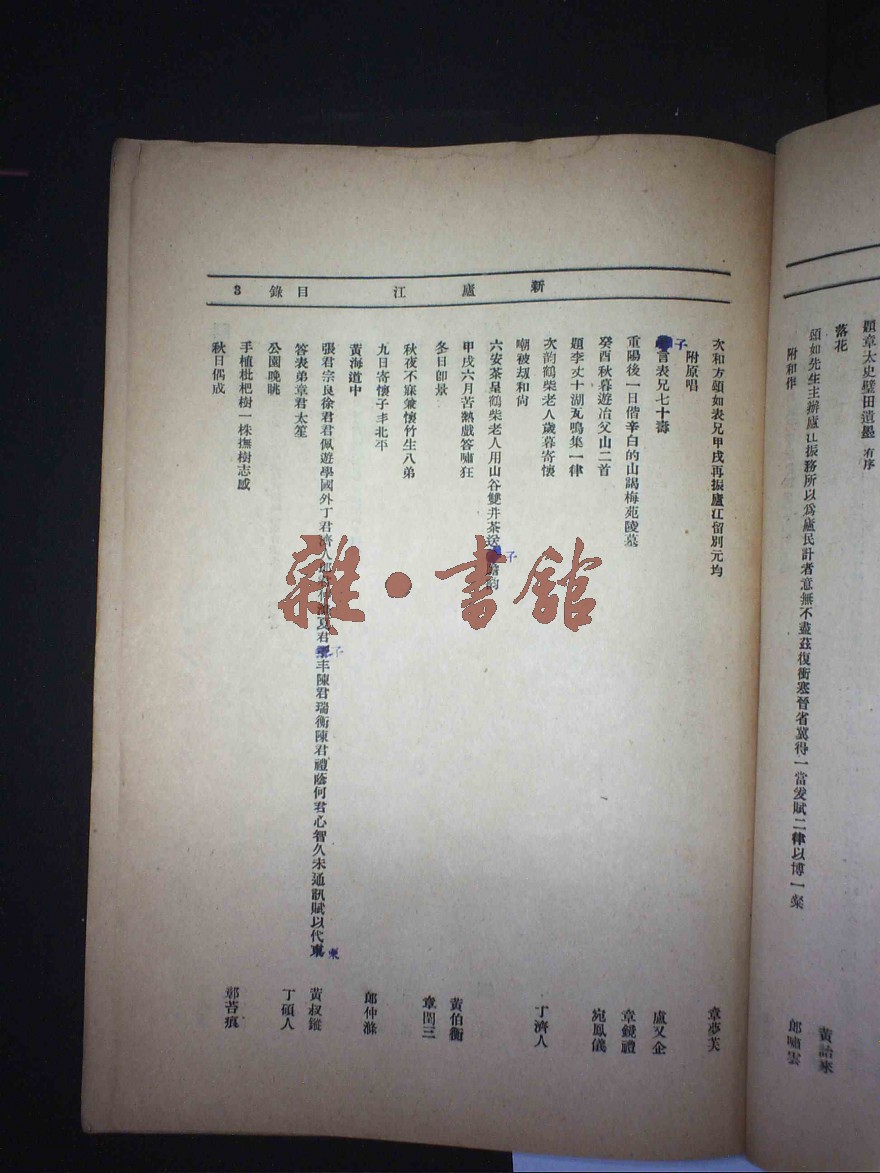 題章太史璧田遺墨 有序
落花
黃詒來
附和作
郎嘯雲
頌如先生主辦廬江振務所以為廬民計者意無不盡茲復衝寒晉省冀得一當爰賦二律以博一粲
新廬江 目錄 3
次和方頌如表兄甲戌再振廬江留別元均
章夢芙
附原唱
子言表兄七十壽
盧又企
重陽後一日偕辛白的山謁梅苑陵墓
章鏡禮
癸酉秋暮遊冶父山二首
宛鳳儀
題李丈十湖瓦鳴集一律
次韵鶴柴老人歲暮寄懷
丁濟人
嘲被刼和尙
六安茶呈鶴柴老人用山谷雙井茶送子瞻韵
甲戌六月苦熱戲答嘯狂
黃伯衡
冬日卽景
章閏三
秋夜不寐兼懷竹生八弟
九日寄懷子丰北平
郎仲滌
黃海道中
張君宗良徐君君佩遊學國外丁君濟人夏君子丰陳君瑞衡陳君禮蔭何君心智久未通訊賦以代柬
黃叔鏦
答表弟章君太笙
丁碩人
公園晚眺
手植枇杷樹一株撫樹志感
秋日偶成
鄒苔痕
雜·書館